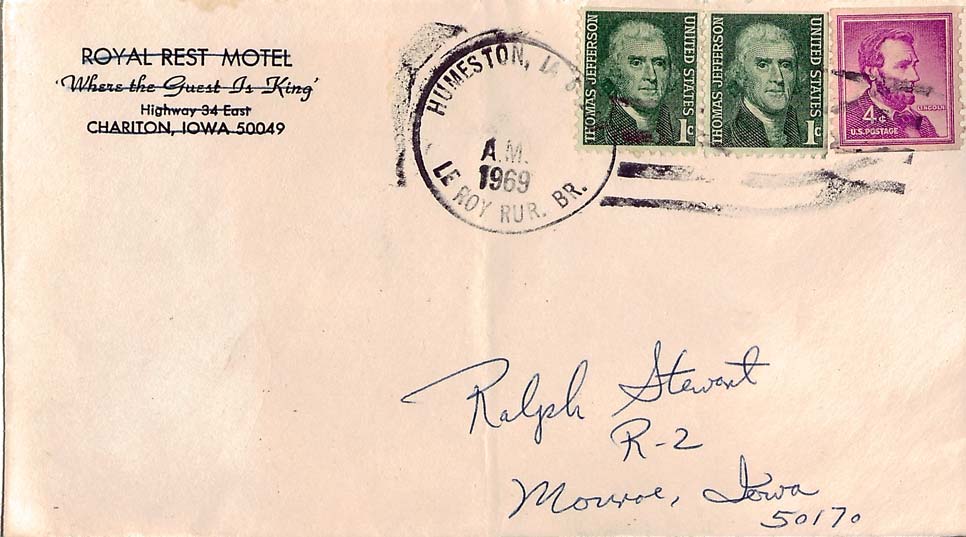 ROYAL REST MOTEL
'Where the Guest Is King'
Highway 34 East
CHARITON, IOWA 50049
HUMESTON, IA
A.M.
1969
LE ROY RUR. BR.
THOMAS JEFFERSON
UNITED STATES
1c
THOMAS JEFFERSON
UNITED STATES
1c
LINCOLN
4¢
U.S. POSTAGE
Ralph Stewart
R-2
Monroe, Iowa
50170